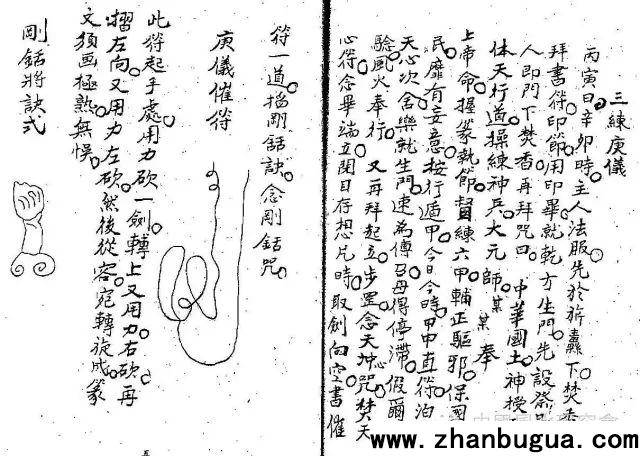 三練庚儀
丙寅日辛卯時主人法服先於祈纛下焚香
拜書符印節用印畢就乾方生門先設祭
人即門下焚香再拜咒曰 中華國土神授
体天行道操練神兵大元師某某奉
上帝命握篆執節督練六甲輔正驅邪保國
民靡有妄意按行遁甲今日今時甲申直符泊
天心次舍樂就生門速為傳召毋得停滯假爾
驗風火奉行 又再拜起立步罡念天坤咒焚天
心符念畢端立閉目存想片時取劍向空書催
符一道掐剛銛訣念剛銛咒
庚儀催符
此符起手處用力砍一劍轉上又用力右砍再
摺左向又用力左砍然後從容宛轉旋成篆
文須画極熟無悞
剛銛將訣式
www.zhanbugua.com